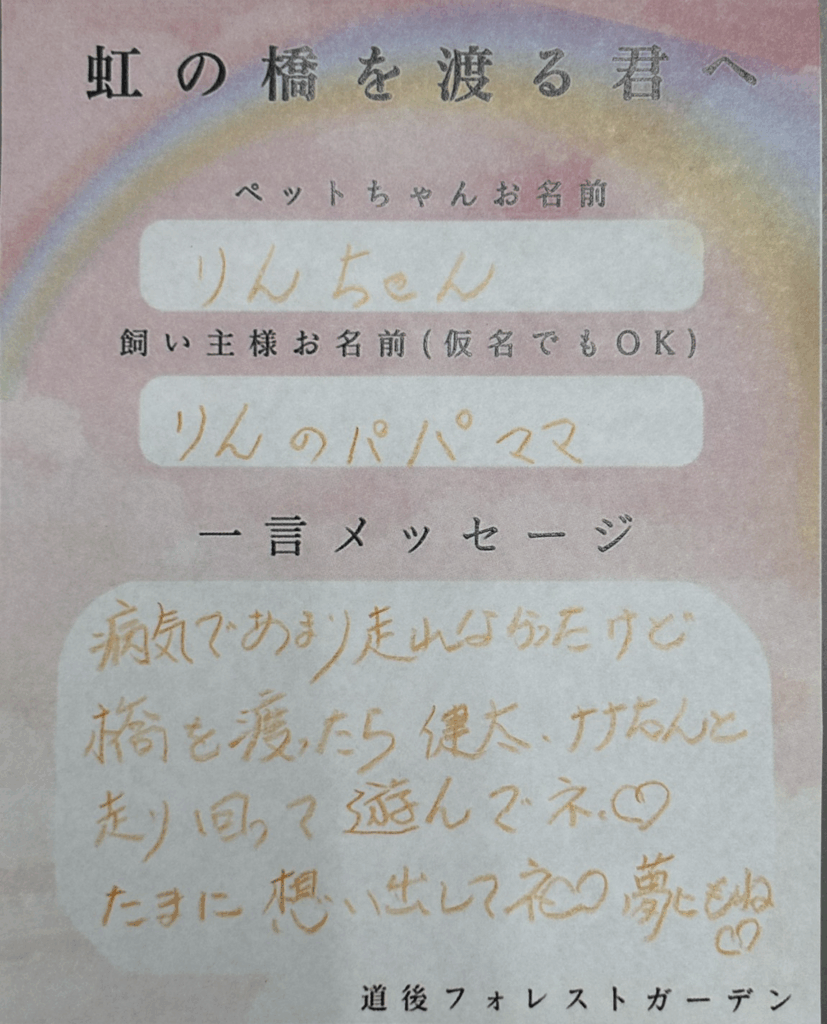 虹の橋を渡る君へ
ペットちゃんお名前
りんちゃん
飼い主様お名前(仮名でもOK)
りんのパパママ
一言メッセージ
病気であまり走れなかったけど
橋を渡ったら健太、ナナちゃんと
走り回って遊んでネ♡
たまに想い出してネ♡夢にもね
♡
道後フォレストガーデン